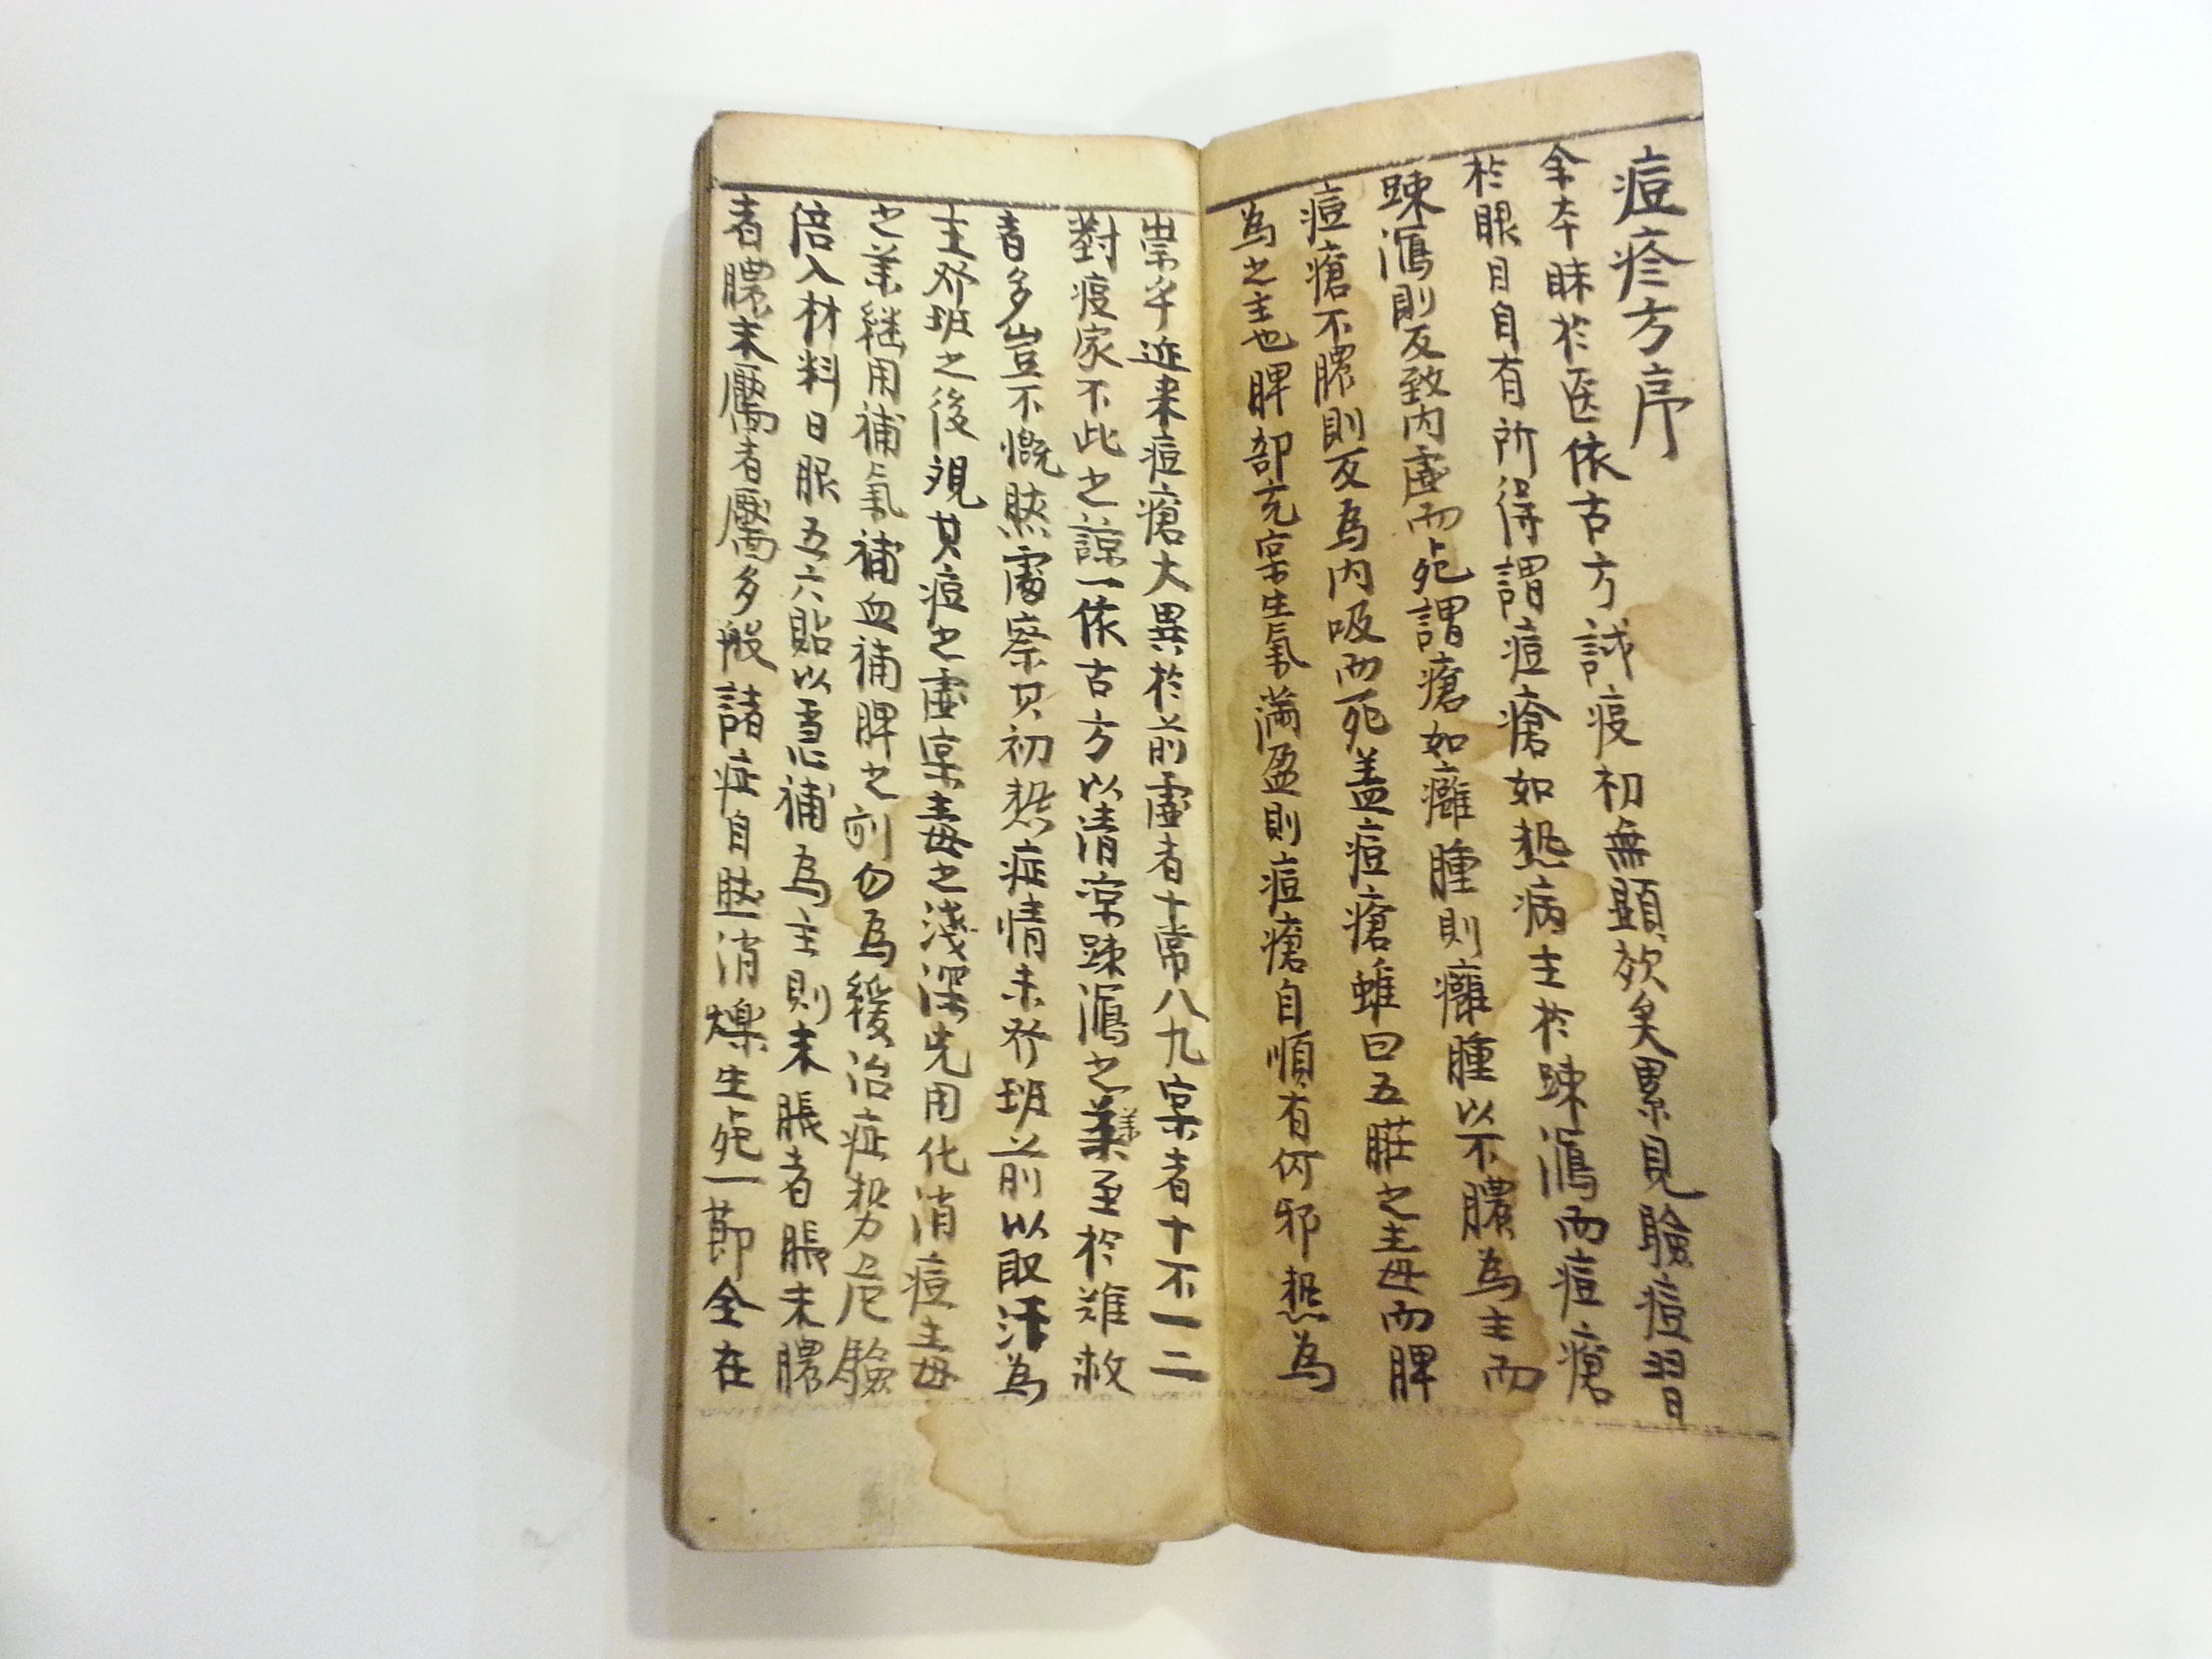 痘疹方序
余本昧於医依古方試疫初無顯效矣累見驗痘習
於眼目自有所得謂痘瘡如熱病主於踈瀉而痘瘡
踈瀉則反致内虛而死謂瘡如癰腫則癰腫以不膿為主而
痘瘡不膿則反為内吸而死盖痘瘡雖曰五臟之主毒而脾
為之主也脾部充实生氣满盈則痘瘡自順有何邪熱為
祟乎近来痘瘡大異於前虛者十常八九实者十不一二
對疫家不此之諒一依古方以清凉踈瀉之薬至於难救
者多豈不慨然審察其初熱症情未發班前以取汗為
主發班之後視其痘之虛实毒之淺深先用化消痘毒
之薬継用補氣補血補脾之剤勿為緩治症势危驗
倍入材料日服五六貼以雪心補為主則未脹者脹未膿
者膿未靨者靨多般諸症自然消爍生死一節全在